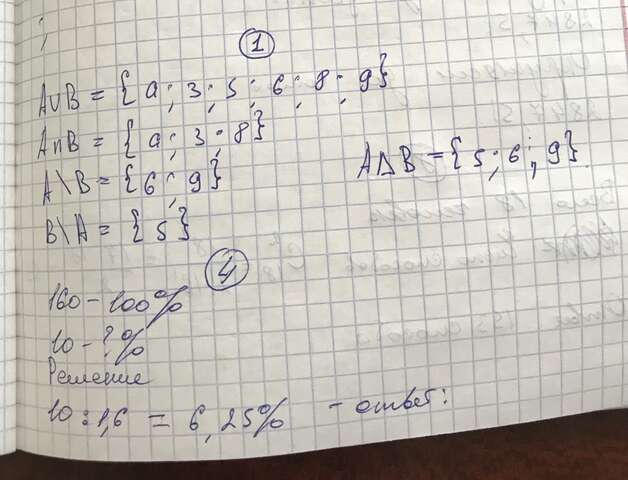 1
A∪B = {a; 3; 5; 6; 8; 9}
A∩B = {a; 3; 8}
A\B = {6; 9}
A△B = {5; 6; 9}
B\A = {5}
4
160 - 100%
10 - ?%
Решение
10 : 1,6 = 6,25% - ответ: